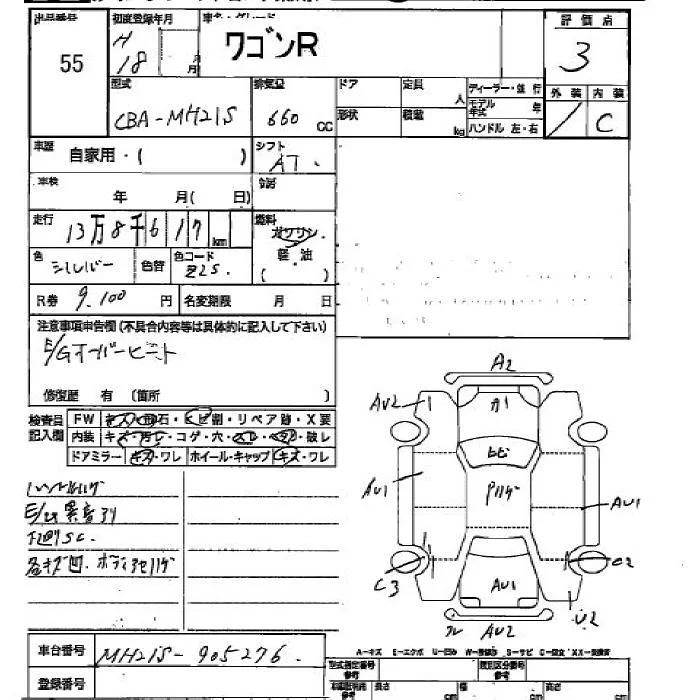 出品番号 初度登録年月 車名・グレード 評価点
55 H 18 月 月 ワゴンR 3
型式 排気量 ドア 定員 人 ディーラー・並行 外装 内装
CBA-MH21S 660 CC 形状 積載 kg モデル年式 年 ハンドル 左・右 C
車歴 自家用・( ) シフト AT
車検 年 月( 日)
走行 13万8千617km 燃料 ガソリン・
色 シルバー 色替 色コード Z2S. 軽油 ( )
R券 9.100 円 名変期限 月 日
注意事項申告欄(不具合内容等は具体的に記入して下さい)
E/Gオーバーヒート
修復歴 有 (箇所 )
検査員 FW キズ・飛石・ヒビ割・リペア跡・X要
記入欄 内装 キズ・汚レ・コゲ・穴・スレ・ ・破レ
ドアミラー キズ・ワレ ホイール・キャップ キズ・ワレ
異音アリ
下廻りSC.
各キズ凹.ボディ
A2
AU2 カ1
ヒビ
AU1 Pハゲ AU1
C3 AU1 C2
AU2 U2
車台番号 MH21S-905276.
登録番号
A-キズ E-エクボ U-凹み S-サビ
型式指定番号 類別区分番号
長さ cm 幅 cm 高さ cm